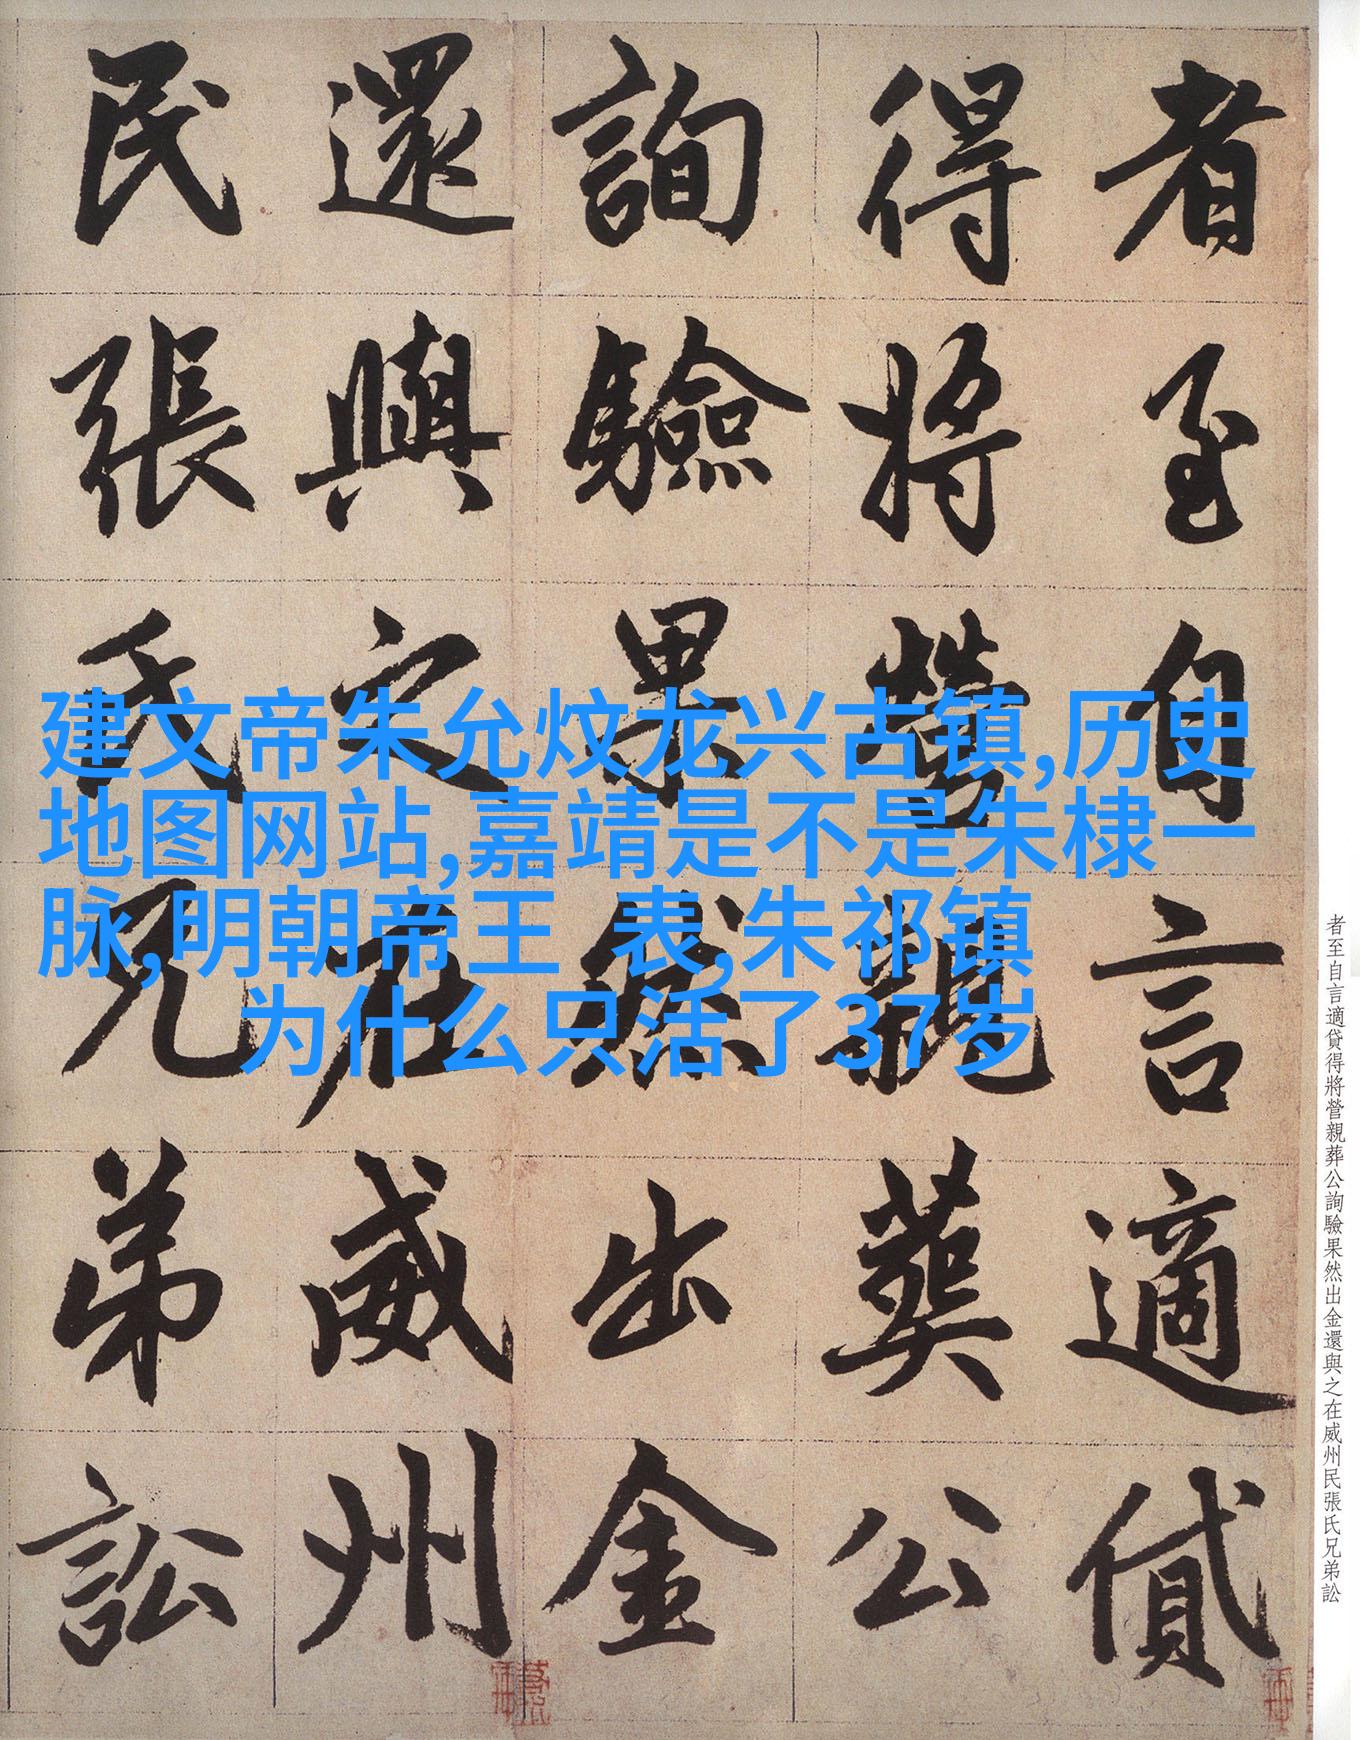 者至自言適貸
得將營親葬公
詢驗果然出金
還與之在威州
民張氏兄弟訟
建文帝朱允炆龙兴古镇,历史
地图网站,嘉靖是不是朱棣一
脉,明朝帝王 表,朱祁镇
为什么只活了37岁
者至自言適貸得將營親葬公詢驗果然出金還與之在威州民張氏兄弟訟